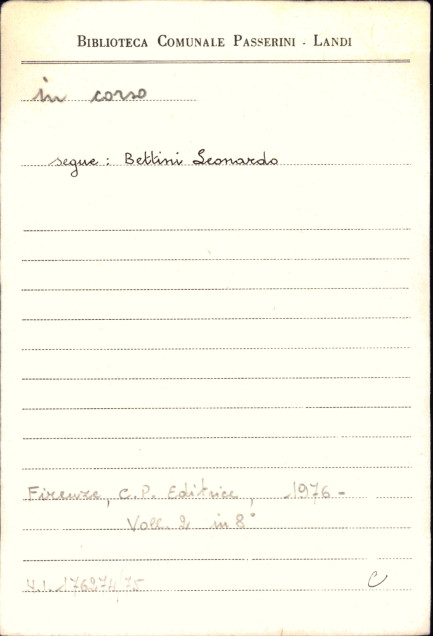 BIBLIOTECA COMUNALE PASSERINI - LANDI
in corso
segue: Bettini Leonardo
Firenze, C.P. Editrice, 1976 -
Voll. 2 in 8°
V.I. 176274/75 C